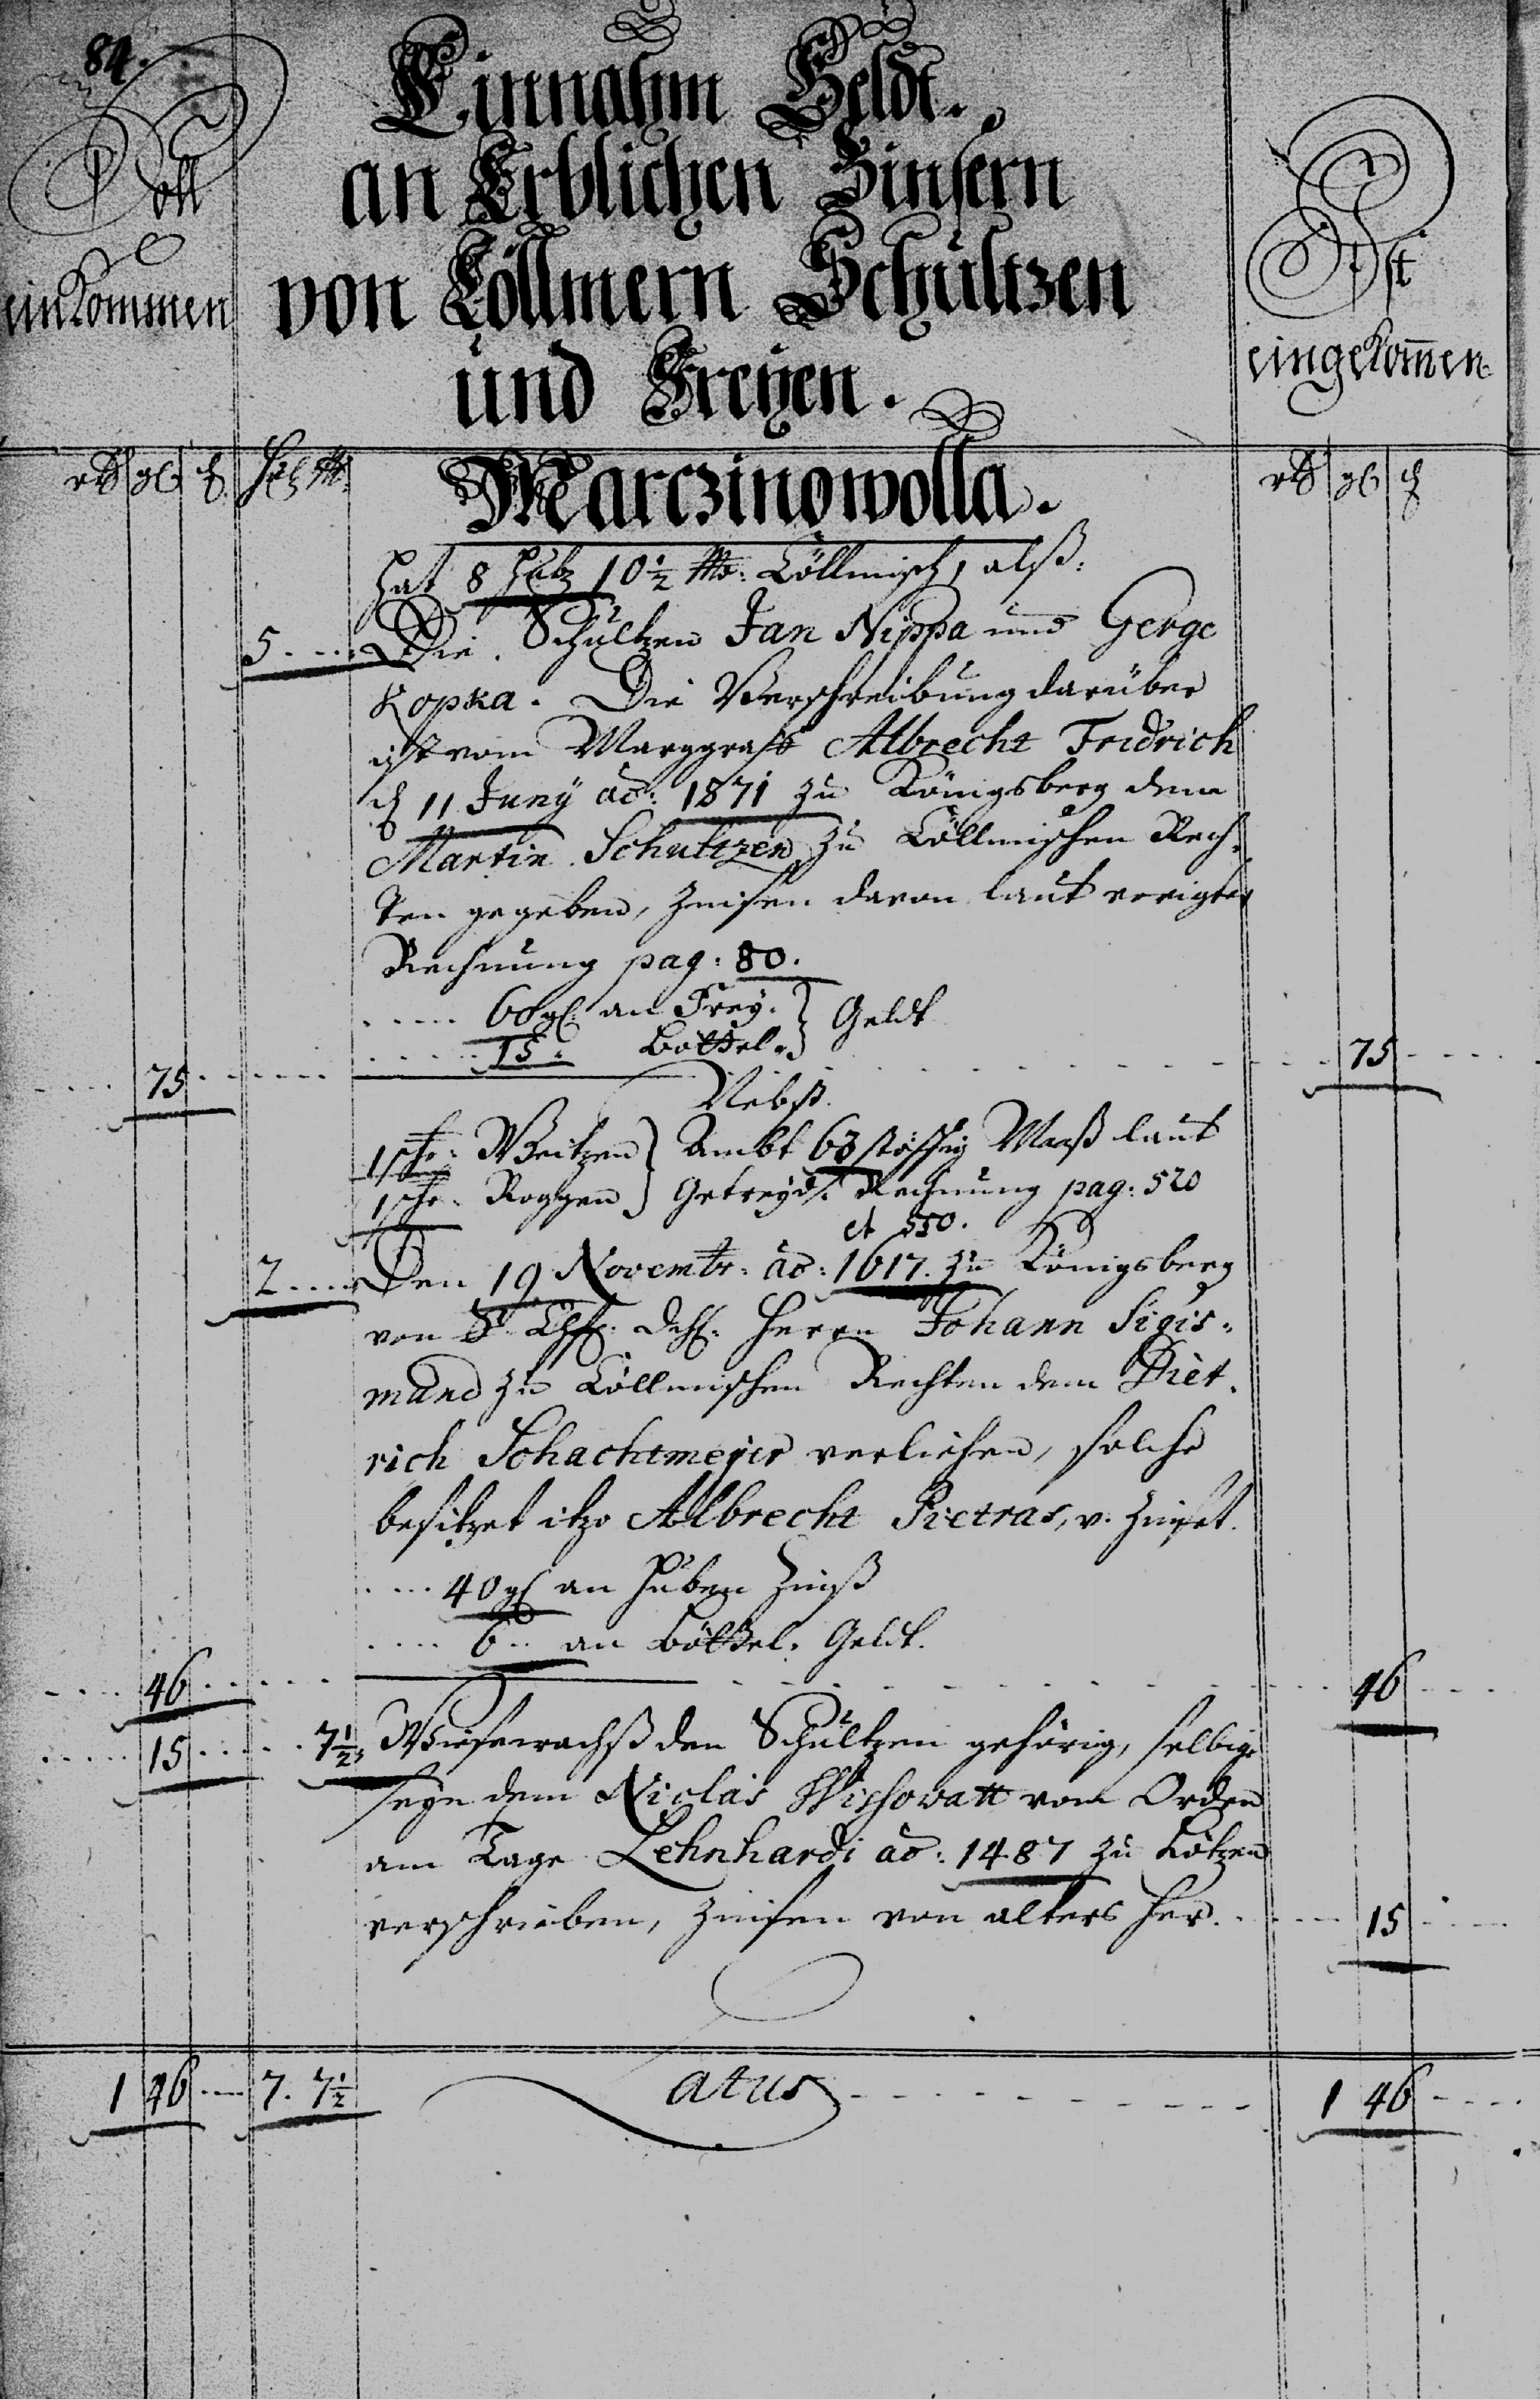 84.
Soll
einkommen
Einnahm Geldt.
an Erblichen Zinsern
von Cöllmern Schultzen
und Freyen.
Ist
eingekom̄en
Marczinowolla.
hat 8 Hub 10½ Mo: Cöllmisch, alß:
5 Die Schultzen Jan Nippa und Gerge
Kopka. Die Verschreibung darüber
ist vom Marggraff Albrecht Fridrich
d 11 Juny ao: 1871 zu Königsberg dem
Martin Schultzen zu Cöllmischen Rech-
ten gegeben, zinsen davon laut vorigter
Rechnung pag: 80.
60 gl: an Frey- } Geldt
15 " Böttel- }
75 75
Nebst.
1 schr: Weitzen } Ambt 63 stöffig Maß laut
1 schr. Roggen } Getreyd: Rechnung pag: 520
et 550.
2 Den 19 Novembr: ao: 1617. zu Königsberg
von Herrn Johann Sigis-
mund zu Cöllmischen Rechten dem Diet-
rich Schachtmeyer verliehen, solche
besitzet itzo Albrecht Pietras, v. zinset.
40 gl an Huben Zinß
6 " an Böttel-Geldt.
46 46
15 7½ Wiesewachß den Schultzen gehörig, selbige
seyn dem Niclas Wissowatt vom Orden
am Tage Lehnhardi ao: 1487 zu Lötzen
verschrieben, zinsen von alters her. 15
1 46 7. 7½ Latus 1 46